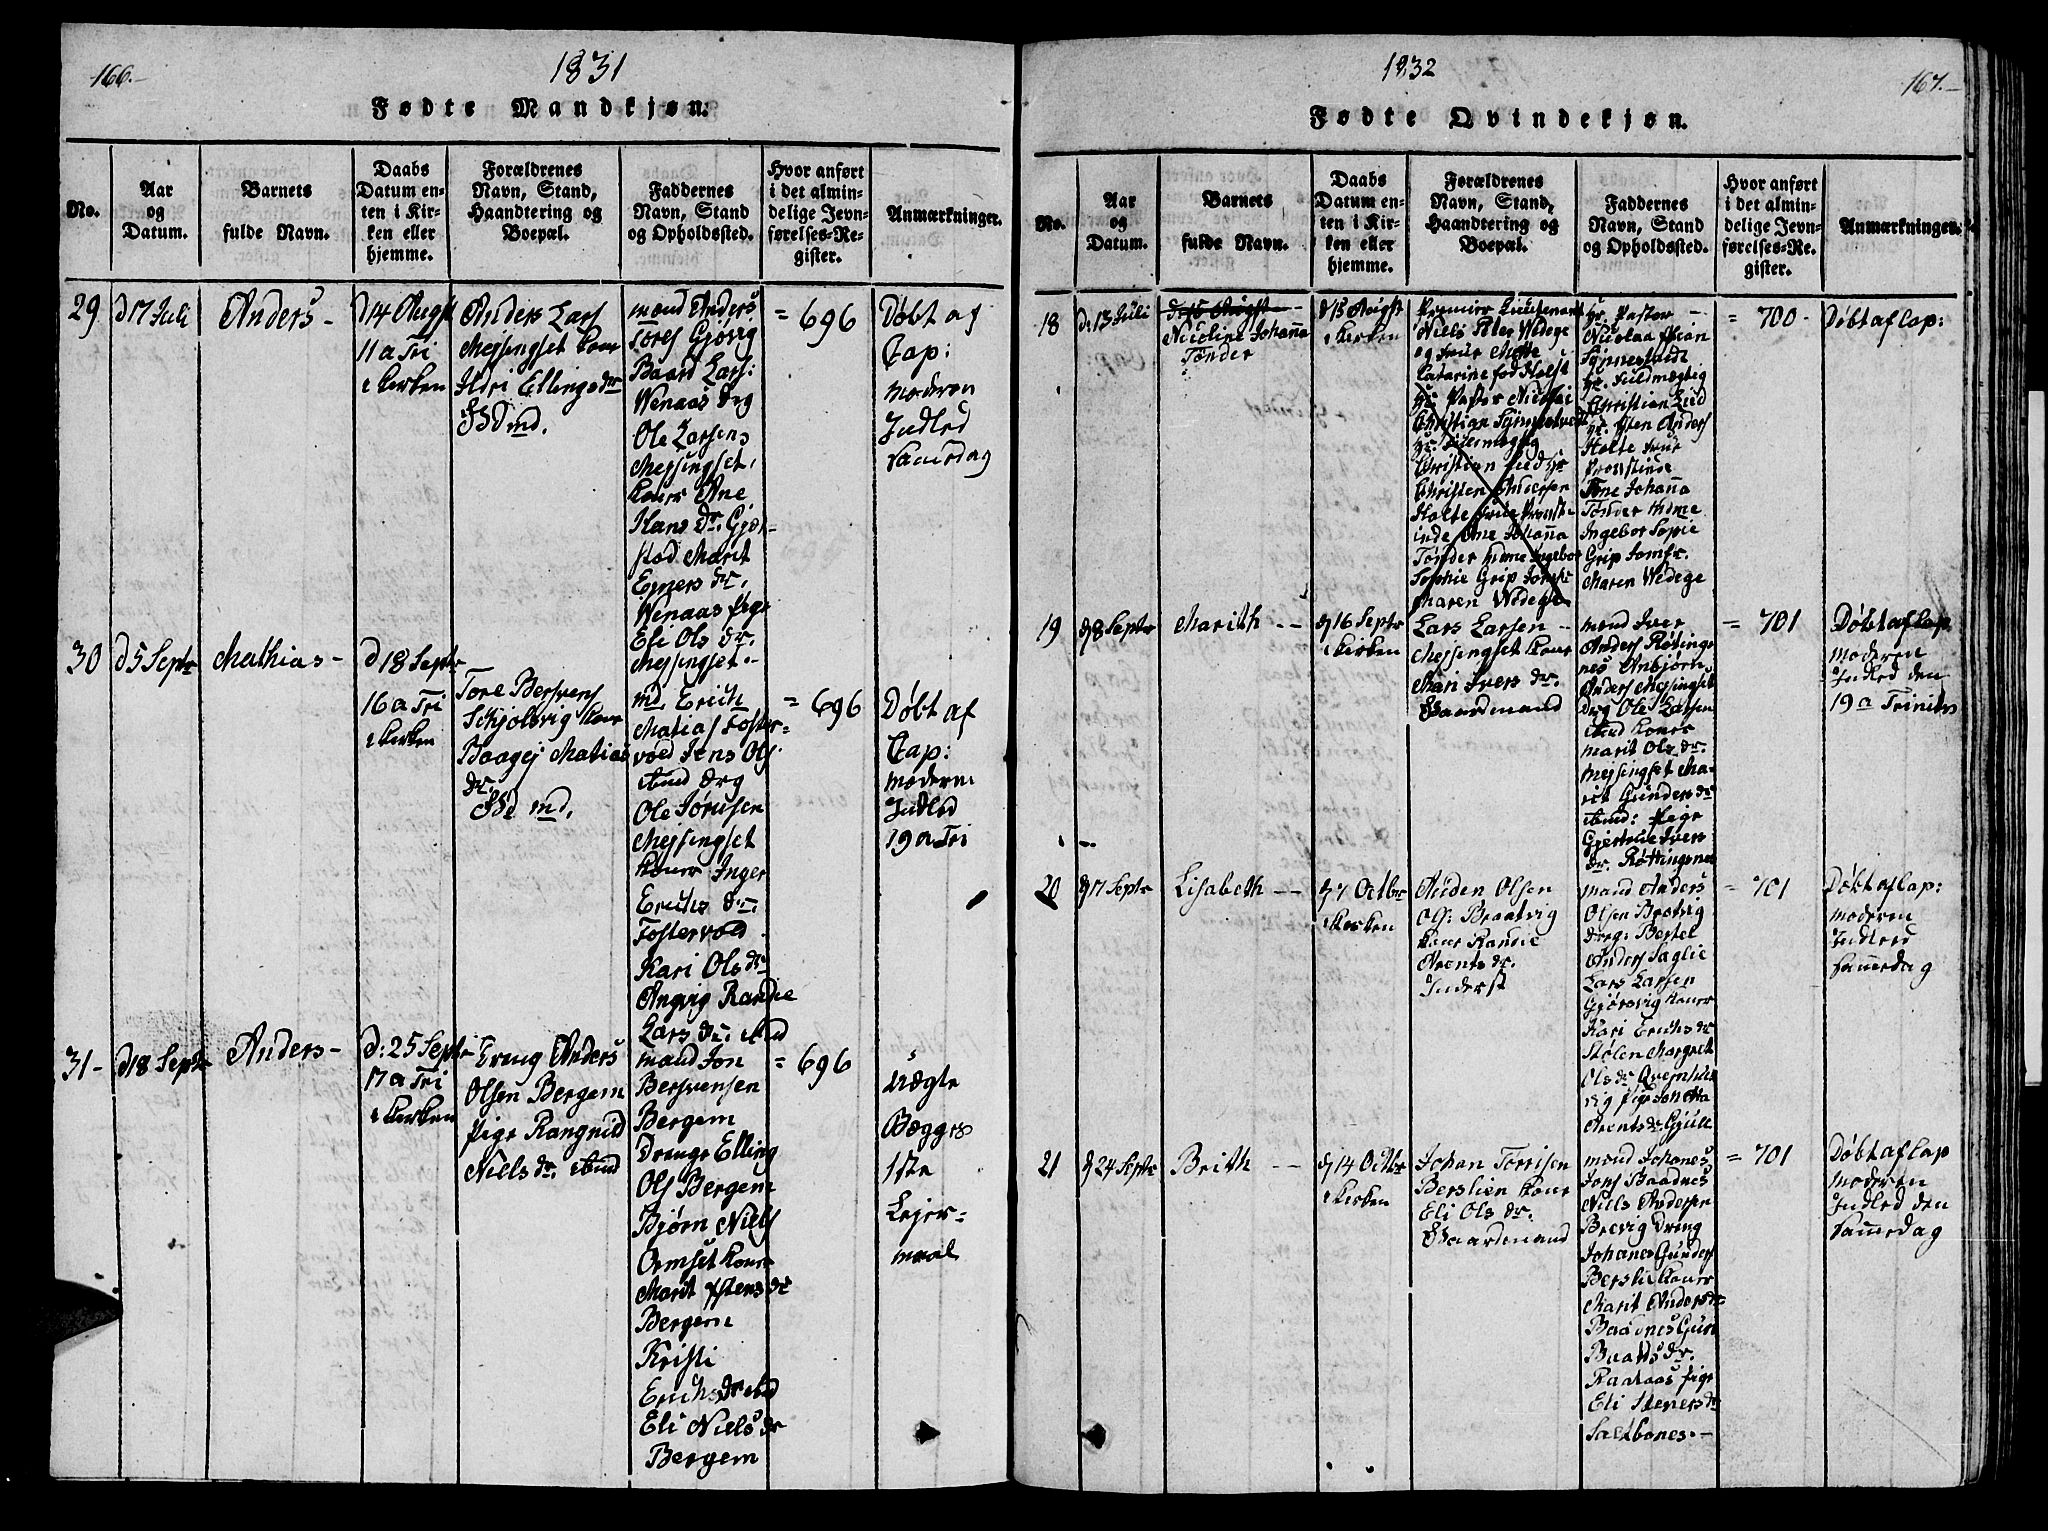 166.
1831
Fødte Mandkjøn.
No.
Aar
og
Datum.
Barnets
fulde Navn.
Daabs
Datum en-
ten i Kir-
ken eller
hjemme.
Forældrenes
Navn, Stand,
Haandtering og
Boepæl.
Faddernes
Navn, Stand
og Opholdssted.
Hvor anført
i det almin-
delige Jevn-
førelses-Re-
gister.
Anmærkninger.
29
d 17 Juli
Anders -
d 14 Augst
11 a Tri
i Kirken
Anders Lars
Messingset Kone
Ildri Ellings dr
md.
mand Anders
Tores Gjøvig
Baard Lars:
Wenaas drg
Ole Larsens
Messingset,
Koner Ane
Hans dr. Gjør-
stad Marit
Ejners dr.
Wenaas pige
Eli Ols dr.
Messingset.
= 696
Døbt af
Cap:
moderen
Indled
samedag
30
d 5 Septr
Mathias -
d 18 Septr
16 a Tri
i Kirken
Tore Bersvens
Schjolsvig Kone
Matias
dr.
md.
md Erich
Matias Foster-
vold Jens Ols
ibid drg
Ole
Messingset
Koner Inger
Erichs dr.
Fostervold
Kari Ols dr
Angvig Randie
Lars dr. ibid
= 696
Døbt af
Cap:
moderen
Indled
19 a Tri
31 -
d 18 Septr
Anders -
d: 25 Septr
17 a Tri
i Kirken
Anders
Olsen Bergem
pige Rangnild
Niels dr. ibid
mand Jon
Bersvensen
Bergem
Drenge Elling
Ols Bergem
Bjørn Niels
Ormset Koner
Marit Estens dr
Bergem
Kristi
Erichs dr ibid
Eli Niels dr
Bergem
= 696
Uægte
Begges
1ste
Lejer-
maal
1832
167.
Fødte Qvindekjøn.
No.
Aar
og
Datum.
Barnets
fulde Navn.
Daabs
Datum en-
ten i Kir-
ken eller
hjemme.
Forældrenes
Navn, Stand,
Haandtering og
Boepæl.
Faddernes
Navn, Stand
og Opholdssted.
Hvor anført
i det almin-
delige Jevn-
førelses-Re-
gister.
Anmærkninger.
18
d: 13 Juli
d 15 Augst
Nicoline Johanna
Tønder
d 15 Augst
i Kirken
Premier Lieutenant
Niels Peter Wedege
og Frue Mette
Catarine fød Holst
Hr. Pastor Nicolai
Christian
Hr.
Christian Lied Hr
Christen Andersen
Holte Frue Provst-
inde Ane Johanna
Tønder Mdme Ingebor
Sophie Grip Jomfr
Maren Wedege
Hr. Pastor
Nicolai
Hr. Fuldmægtig
Christian Lied
Hr. Anders
Holte Frue
Provstinde
Ane Johanna
Tønder Mdme
Ingebor Sopie
Grip Jomfr.
Maren Wedege
= 700 -
Døbt af Cap:
19
d 8 Septr
Marith - -
d 16 Septr
i Kirken
Lars Larsen -
Messingset Kone
Mari Ivers dr.
Gaardmand
mand Iver
Anders Røtings-
nes Anbjørn
Anders Messingset
drg Ole Larsen
ibid Koner
Marit Ols dr.
Messingset Ma-
rit Gunders dr
ibid: Pige
Gjertrue Ivers
dr. Røttingsnes
= 701
Døbt af Cap
moderen
Indled den
19 a Trinits
20
d 7 Septr
Lisabeth - -
d 7 Octbr
i Kirken
Auden Olsen
Ols: Braatvig
Kone Randie
Arents dr.
Inderst
mand Anders
Olsen Brotvig
dreg: Bertel
Anders Saglie
Lars Larsen
Gjørsvig Koner
Kari Erichs dr
Stølen Margret
Ols dr
vig pige Jonetta
Arents dr Gjull
= 701
Døbt af Cap:
moderen
Indled
samedag
21
d 24 Septr
Brith - -
d 14 Octbr
i Kirken
Johan Torrisen
Berslien Kone
Eli Ols dr.
Gaardmand
mand Johanes
Jons Baadnes
Niels Andersen
Brevig Dreng
Johanes Gunders
Berslie Koner
Marit Anders dr
Baadnes Guri
Baards dr.
Raanaas pige
Eli Steners dr
Saltbones. -
= 701
Døbt af Cap
moderen
Indled den
samedag